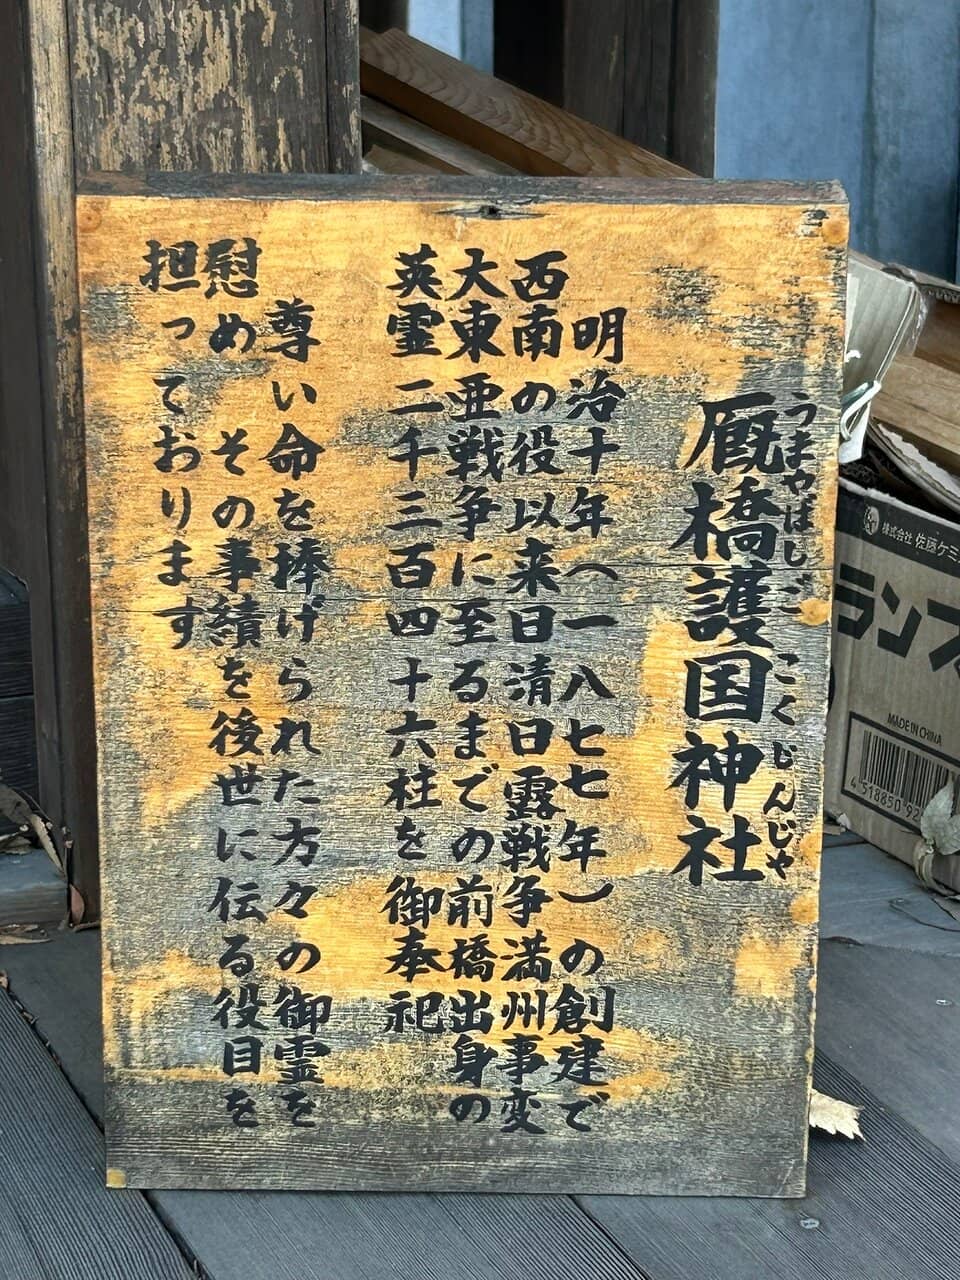 厩橋護国神社
うまやばしごこくじんじゃ
明治十年（一八七七年）の創建で
西南の役以来日清日露戦争満州事変
大東亜戦争に至るまでの前橋出身の
英霊二千三百四十六柱を御奉祀
尊い命を捧げられた方々の御霊を
慰め その事績を後世に伝る役目を
担っております
株式会社 佐藤ケミ
ランス
MADE IN CHINA
4 518850 92